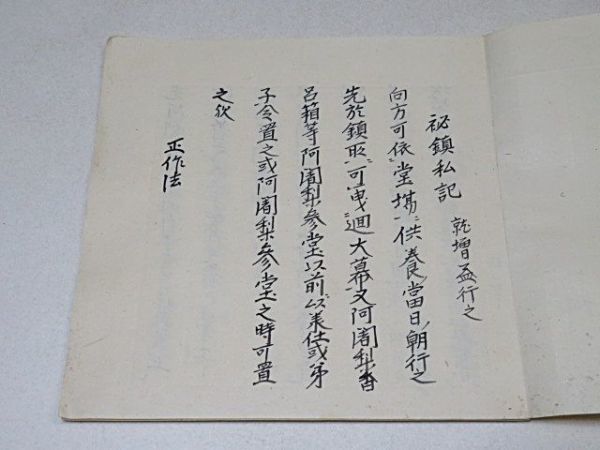 祕鎮私記 乾増益行之
向方可依堂塲供養當日朝行之
先於鎮所可曳廻大幕又阿闍梨香
呂箱等阿闍梨參堂以前以承仕或弟
子令置之或阿闍梨參堂之時可置
之欤
正作法